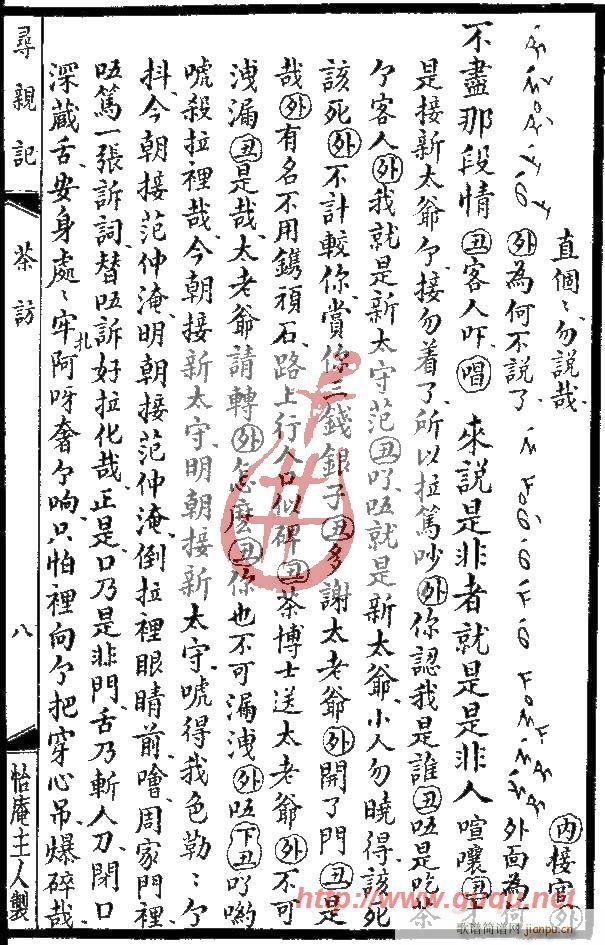 直個〻勿說哉
㊤接官
不盡那段情 丑 客人吓 唱 來說是非者就是是非人 喧嚷 丑
外 為何不說了
外面為
是接新太爺个接勿着了所以拉篤吵 外 你認我是誰 丑 唔是吃茶
个客人 外 我就是新太守范 丑 吖唔就是新太爺小人勿曉得該死
該死 外 不計較你賞你三錢銀子 丑 多謝太老爺 外 開了門 丑 是
哉 外 有名不用鐫頑石路上行人口似碑 丑 茶博士送太老爺 外 不可
洩漏 丑 是哉太老爺請轉 外 怎麼 丑 你也不可漏洩 外 唔 下 丑 吖喲
唬殺拉裡哉今朝接新太守明朝接新太守唬得我色勒〻个
抖今朝接范仲淹明朝接范仲淹倒拉裡眼睛前噲周家門裡
唔篤一張訴詞替唔訴好拉化哉正是口乃是非門舌乃斬人刀閉口
深藏舌安身處〻牢阿呀奢个响只怕裡向个把穿心吊爆碎哉
尋親記
茶訪
八
怡庵主人製
http://www.guqu.net
歌谱简谱网
jianpu.cn